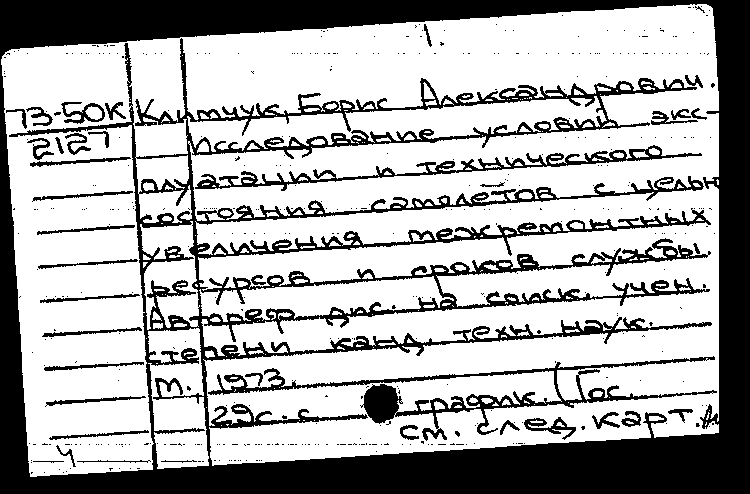 1.
73-50К Климчук, Борис Александрович.
2127 Исследование условий экс-
плуатации и технического
состояния самолетов с целью
увеличения межремонтных
ресурсов и сроков службы.
Автореф. дис. на соиск. учен.
степени канд. техн. наук.
М. 1973.
29с. с график. (Гос.
см. след. карт.
4